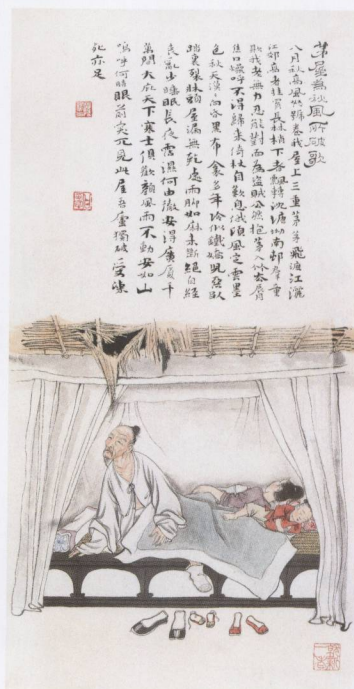 茅屋為秋風所破歌
八月秋高風怒號卷我屋上三重茅茅飛渡江灑
江郊高者挂罥長林梢下者飄轉沈塘坳南邨群童
欺我老無力忍能對面為盜賊公然抱茅入竹去脣
焦口燥呼不得歸來倚杖自歎息俄頃風定雲墨
色秋天漠〻向昏黑布衾多年冷似鐵嬌兒惡臥
踏裏裂牀頭屋漏無乾處雨腳如麻未斷絕自經
喪亂少睡眠長夜霑濕何由徹安得廣廈千
萬間大庇天下寒士俱歡顏風雨不動安如山
嗚呼何時眼前突兀見此屋吾廬獨破受凍
死亦足